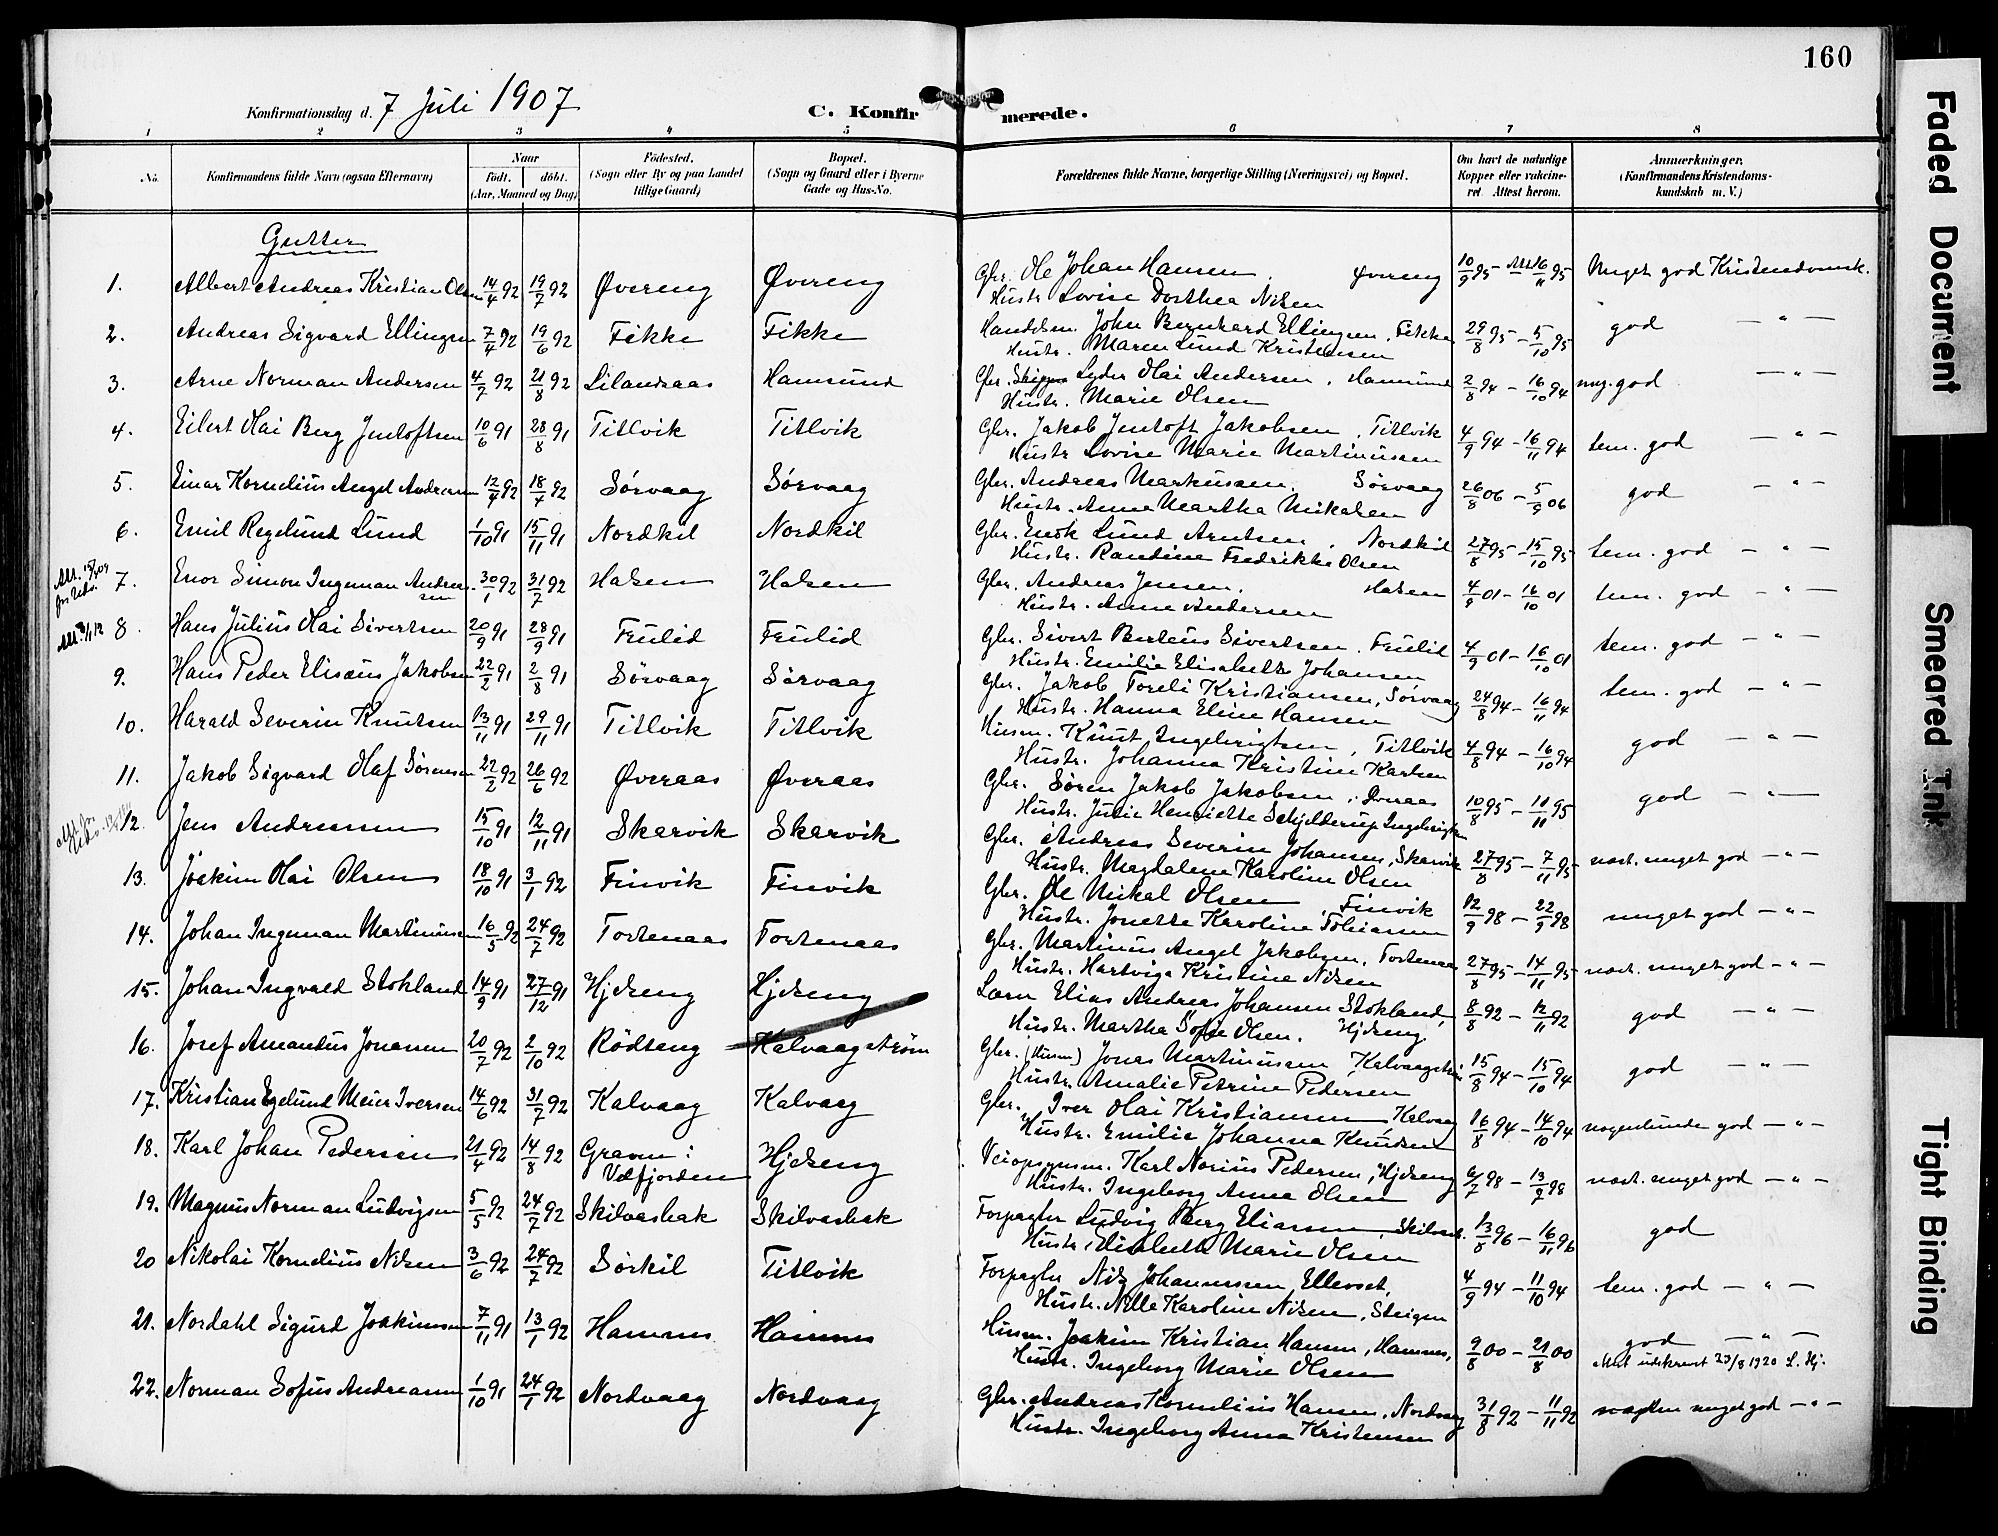 160
Konfirmationsdag d. 7 Juli 1907 C. Konfirmerede.
1 2 3 4 5 6 7 8
No. Konfirmandens fulde Navn (ogsaa Efternavn) Naar født. døbt. (Aar, Maaned og Dag) Fødested. (Sogn eller By og paa Landet tillige Gaard) Bopæl. (Sogn og Gaard eller i Byerne Gade og Hus-No. Forældrenes fulde Navne, borgerlige Stilling (Næringsvei) og Bopæl. Om havt de naturlige Kopper eller vakcineret. Attest herom. Anmærkninger. (Konfirmandens Kristendomskundskab m. V.)
Gutter
1. Albert Andreas Kristian Olsen 14/4 92 19/7 92 Øvereng Øvereng Gbr. Ole Johan Hansen, Øvereng 10/9 95 - Att 16/11 95 Meget god Kristendomsk.
Hustr. Lovise Dorthea Nilsen
2. Andreas Sigvard Ellingsen 7/4 92 19/6 92 Fikke Fikke Handelsm. John Bernhard Ellingsen, Fikke 29/8 95 - 5/10 95 god — " —
Hustr. Maren Lund Kristensen
3. Arne Norman Andersen 4/7 92 21/8 92 Lilandsaas Hamsund Gbr. Skipper Lyder Olai Andersen, Hamsund 2/8 94 - 16/10 94 meg. god — " —
Hustr. Marie Olsen
4. Eilert Olai Berg Jentoftsen 10/6 91 28/8 91 Titlvik Titlvik Gbr. Jakob Jentoft Jakobsen, Titlvik 4/9 94 - 16/11 94 tem. god — " —
Hustr. Lovise Marie Martinussen
5. Einar Kornelius Angel Andreasen 12/4 92 18/4 92 Sørvaag Sørvaag Gbr. Andreas Markussen, Sørvaag 26/8 06 - 5/9 06 god — " —
Hustr. Anne Martha Mikalsen
6. Emil Regelund Lund 1/10 91 15/11 91 Nordkil Nordkil Gbr. Enok Lund Arntsen, Nordkil 27/8 95 - 15/10 95 tem. god — " —
Hustr. Randine Fredrikke Olsen
7. Enor Simon Ingeman Andreassen 30/1 92 31/7 92 Halsen Halsen Gbr. Andreas Jensen, Halsen 4/9 01 - 16/10 01 tem. god — " —
Hustr. Anne Andersen
8. Hans Julius Olai Sivertsen 20/9 91 28/9 91 Frulid Frulid Gbr. Sivert Berteus Sivertsen, Frulid 4/9 01 - 16/10 01 tem. god — " —
Hustr. Emilie Elisabeth Johansen
9. Hans Peder Elisæus Jakobsen 22/2 91 2/8 91 Sørvaag Sørvaag Gbr. Jakob Toreli Kristiansen, Sørvaag 24/8 94 - 16/11 94 tem. god — " —
Hustr. Hanna Eline Hansen
10. Harald Severin Knutsen 13/11 91 29/11 91 Titlvik Titlvik Husm. Knut Ingebrigtsen, Titlvik 4/8 94 - 16/10 94 god — " —
Hustr. Johanna Kristine Karlsen
11. Jakob Sigvard Olaf Sørensen 22/2 92 26/6 92 Øveraas Øveraas Gbr. Søren Jakob Jakobsen, Øveraas 10/8 95 - 11/11 95 god — " —
Hustr. Julie Henriette Schjelderup Ingebrigtsn
12. Jens Andreassen 15/10 91 12/11 91 Skarvik Skarvik Gbr. Andreas Severin Johansen, Skarvik 27/8 95 - 7/11 95 næst. meget god — " —
Hustr. Magdalena Karoline Olsen
13. Joakim Olai Olsen 18/10 91 3/1 92 Finvik Finvik Gbr. Ole Mikal Olsen, Finvik 12/9 98 - 22/9 98 meget god — " —
Hustr. Jonette Karoline Tobiassen
14. Johan Ingeman Martinussen 16/5 92 24/7 92 Tortenaas Tortenaas Gbr. Martinus Angel Jakobsen, Tortenaas 27/8 95 - 14/11 95 næst. meget god — " —
Hustr. Hartviga Kristine Nilsen
15. Johan Ingvald Stokland 14/9 91 27/12 91 Hjelseng Hjelseng Lærer Elias Andreas Johansen Stokland, 8/8 92 - 12/11 92 god — " —
Hustr. Martha Sofie Olsen. Hjelseng
16. Josef Amandus Jonassen 20/7 92 2/10 92 Rødseng Kalvaagstrøm Gbr. (Husm) Jonas Martinussen Kalvaagstrøm 15/8 94 - 15/10 94 god — " —
Hustr. Amalie Petrine Pedersen
17. Kristian Egelund Meier Iversen 14/6 92 31/7 92 Kalvaag Kalvaag Gbr. Iver Olai Kristiansen, Kalvaag 16/8 94 - 14/10 94 nogenlunde god — " —
Hustr. Emilie Johanna Knudsen
18. Karl Johan Pedersen 21/4 92 14/8 92 Graven i Velfjorden Hjelseng Veiopsynsm. Karl Norius Pedersen, Hjelseng 6/7 98 - 13/7 98 næst. meget god — " —
Hustr. Ingeborg Anna Olsen
19. Magnus Norman Ludvigsen 5/5 92 24/7 92 Skilvasbak Skilvasbak Forpagter Ludvig Berg Eliassen, Skilvasb. 13/8 96 - 16/11 96 god
Hustr. Elisabeth Marie Olsen
20 Nikolai Kornelius Nilsen 3/6 92 24/7 92 Sørkil Titlvik Forpagter Nils Johannssen Ellevset, 4/9 94 - 11/10 94 tem. god — " —
Hustr. Nille Karoline Nilsen, Steigen
21. Nordahl Sigurd Joakimsen 7/11 91 13/1 92 Hamnes Hamnes Husm. Joakim Kristian Hansen, Hamnes, 9/8 00 - 21/8 00 god — " —
Hustr. Ingeborg Marie Olsen Attest utskrevet 23/8 1920 L. Hj.
22. Norman Sofus Andreassen 1/10 91 24/1 92 Nordvaag Nordvaag Gbr. Andreas Kornelius Hansen, Nordvaag 31/8 92 - 11/11 92 næsten meget god — " —
Hustr. Ingeborg Anna Kristensen
Faded Document
Smeared Ink
Tight Binding